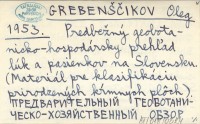 GREBENŠČIKOV Oleg
1953. Predbežný geobota-
nicko-hospodársky prehľad
lúk a pasienkov na Slovensku
(Materiál pre klasifikáciu
prirodzených kŕmnych plôch).
ПРЕДВАРИТЕЛЬНЫЙ ГЕОВОТАНИ-
ЧЕСКО-ХОЗЯЙСТВЕННЫЙ ОБЗОР